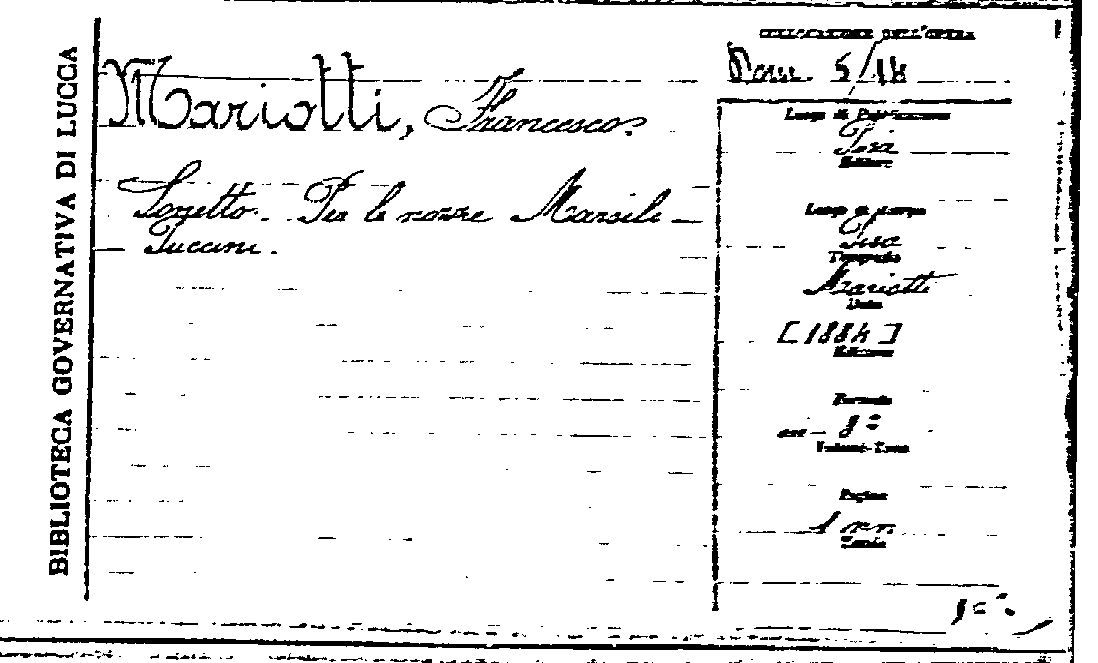 BIBLIOTECA GOVERNATIVA DI LUCCA
COLLOCAZIONE DELL'OPERA
5/14
Mariotti, Francesco.
Sonetto. Per le nozze Marsili -
- Puccini.
Luogo di Pubblicazione
Pisa
Editore
Luogo di stampa
Pisa
Tipografia
Mariotti
Data
[1884]
Edizione
Formato
8º
Volumi-Tomi
Pagine
1 nn.
Tavole